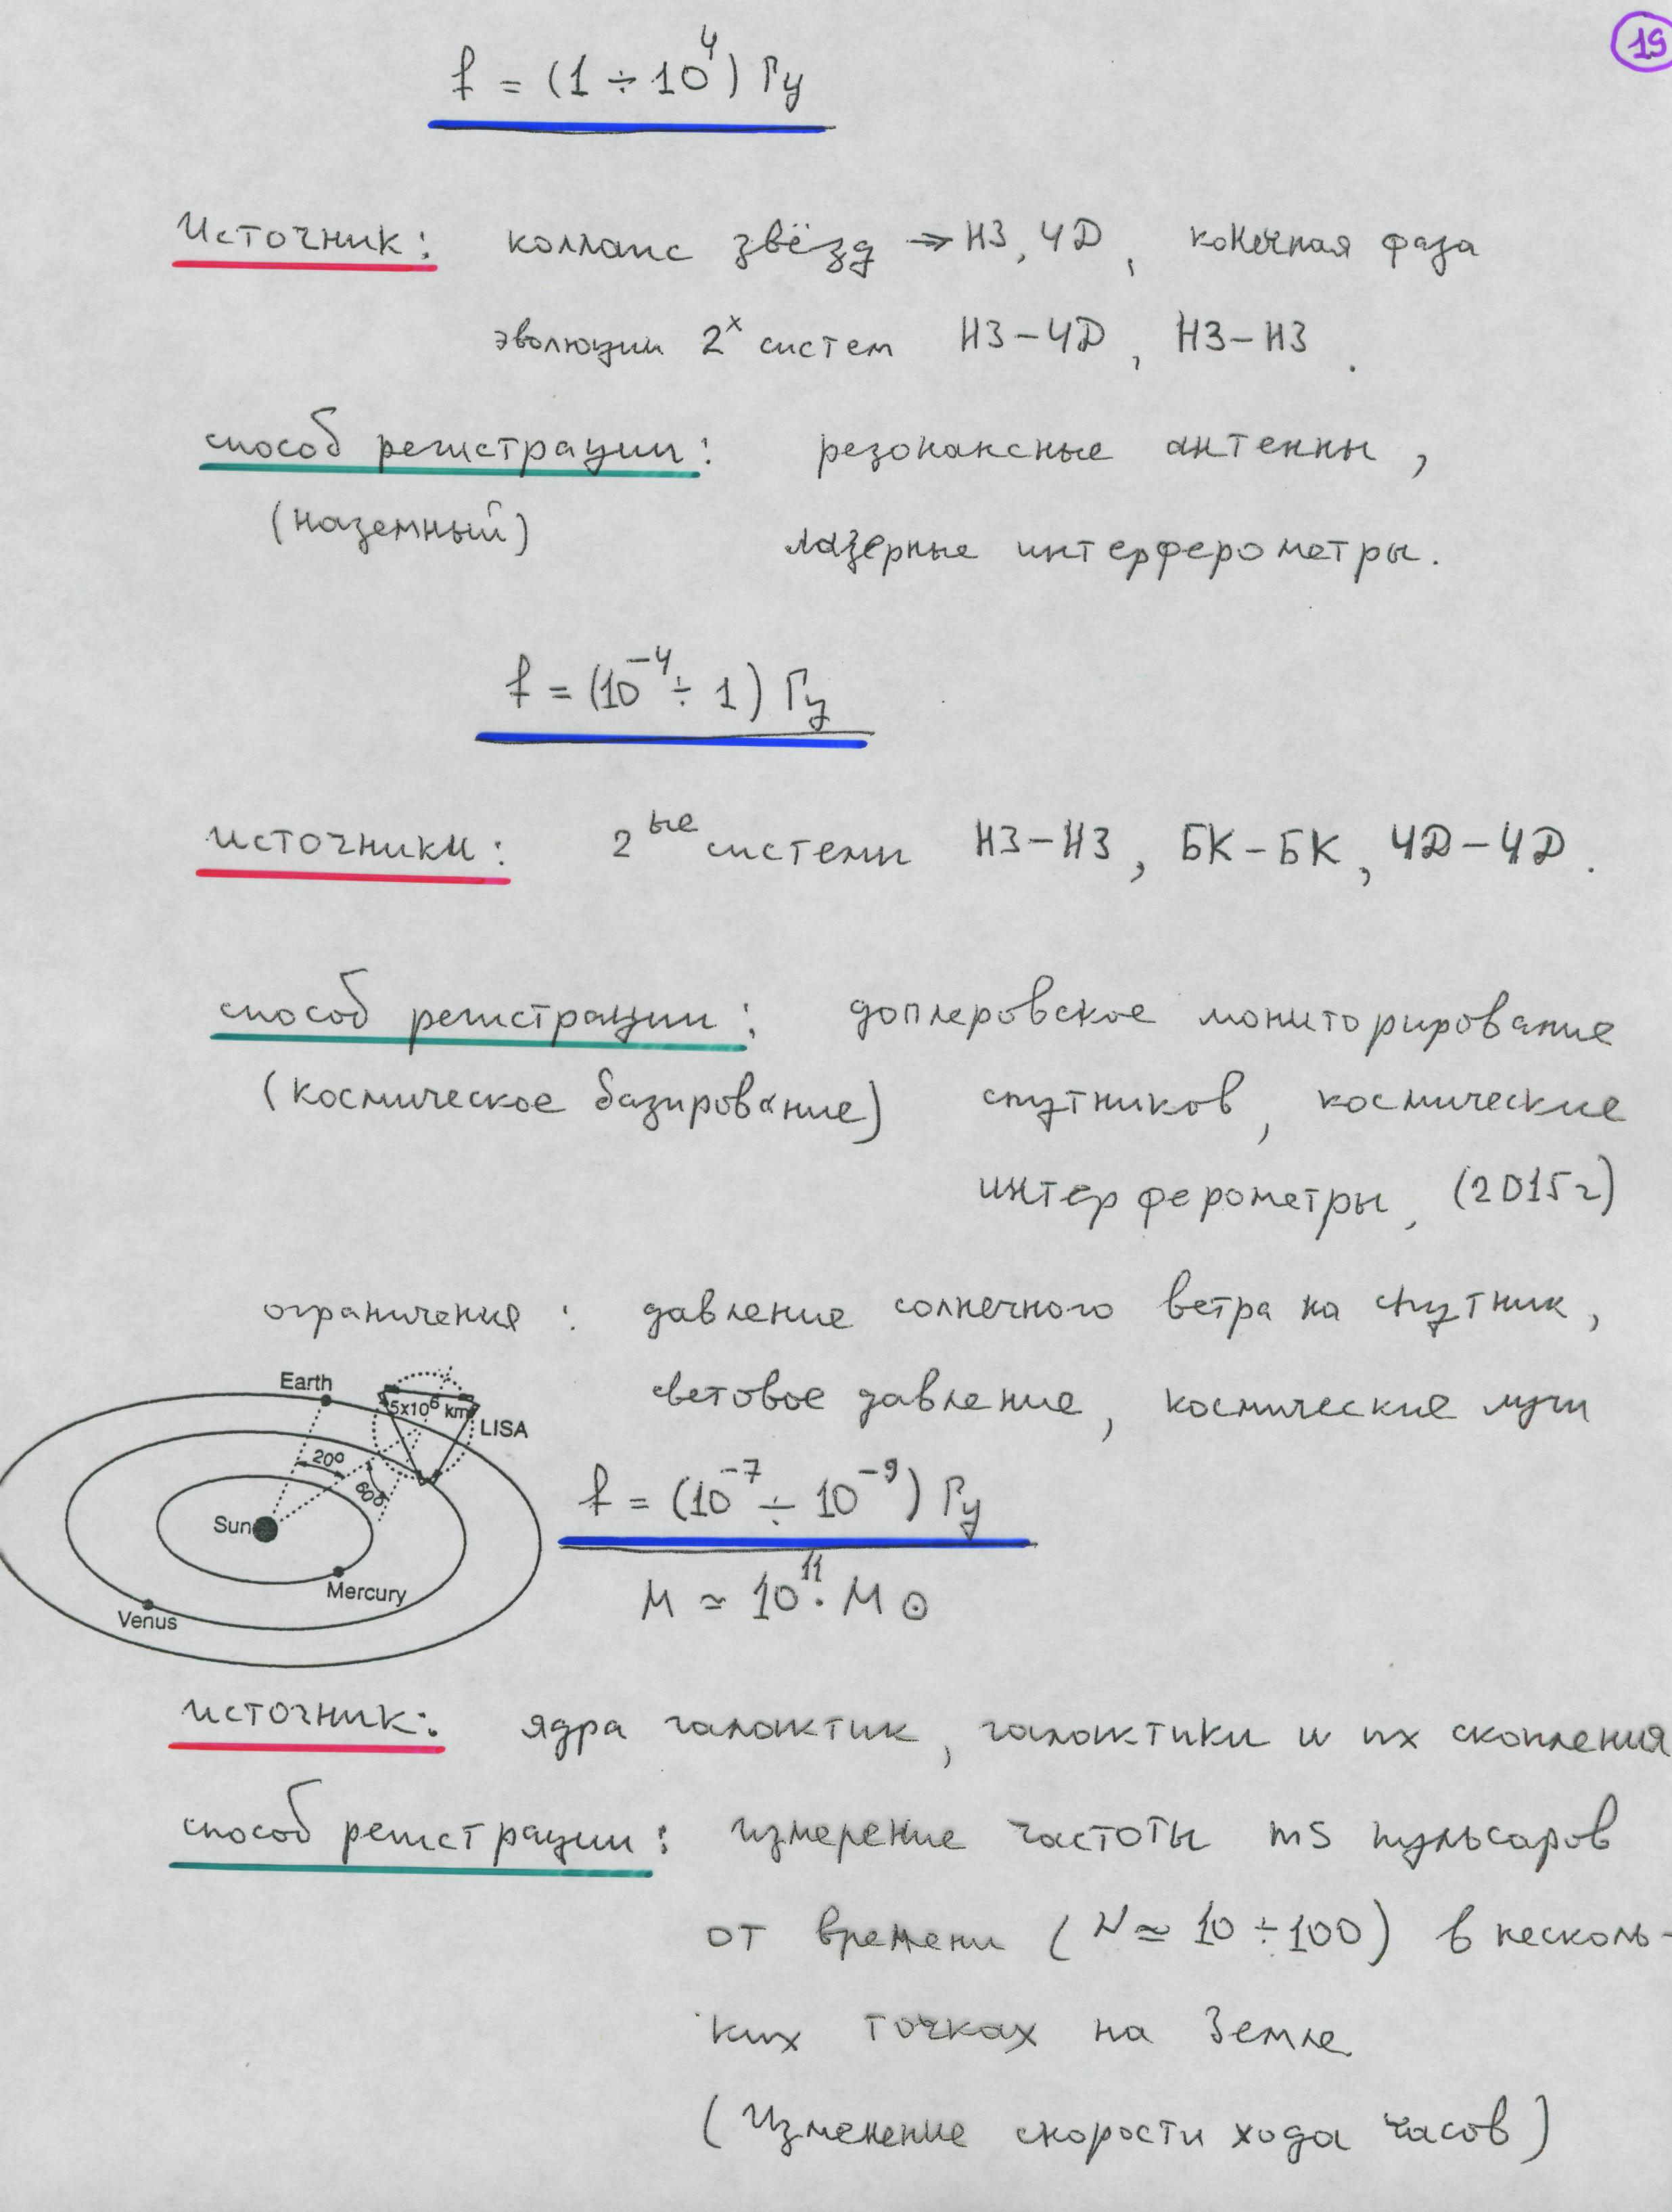 19
f = (1 ÷ 10⁴) Гц
Источник: коллапс звёзд → НЗ, ЧД, конечная фаза
эволюции 2ˣ систем НЗ-ЧД, НЗ-НЗ.
способ регистрации: резонансные антенны,
(наземный) лазерные интерферометры.
f = (10⁻⁴ ÷ 1) Гц
источники: 2ые системы НЗ-НЗ, БК-БК, ЧД-ЧД.
способ регистрации: доплеровское мониторирование
(космическое базирование) спутников, космические
интерферометры, (2015г)
ограничения: давление солнечного ветра на спутник,
световое давление, космические лучи
Earth
5x10⁶ km
LISA
20º
60º
Sun
Mercury
Venus
f = (10⁻⁷ ÷ 10⁻⁹) Гц
M ≃ 10¹¹· M⊙
источник: ядра галактик, галактики и их скопления
способ регистрации: измерение частоты ms пульсаров
от времени (N ≃ 10 ÷ 100) в несколь-
ких точках на Земле
(Изменение скорости хода часов)